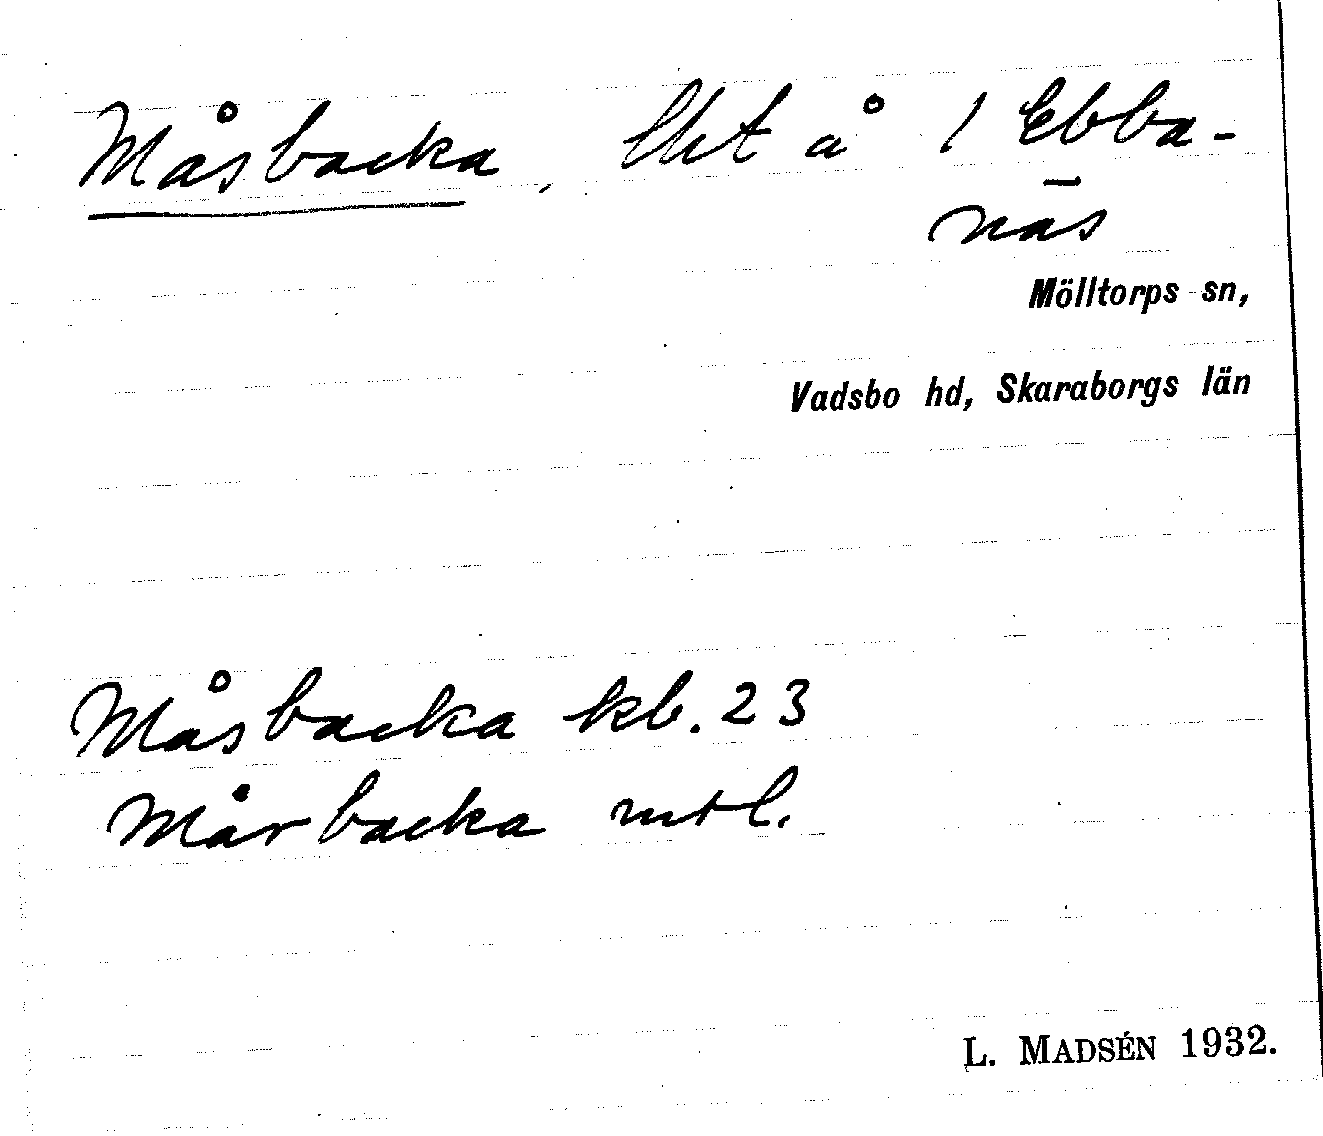 Måsbacka, lht å 1 Ebba-
näs
Mölltorps sn,
Vadsbo hd, Skaraborgs län
Måsbacka kb. 23
Mårbacka mtl.
L. MADSÉN 1932.